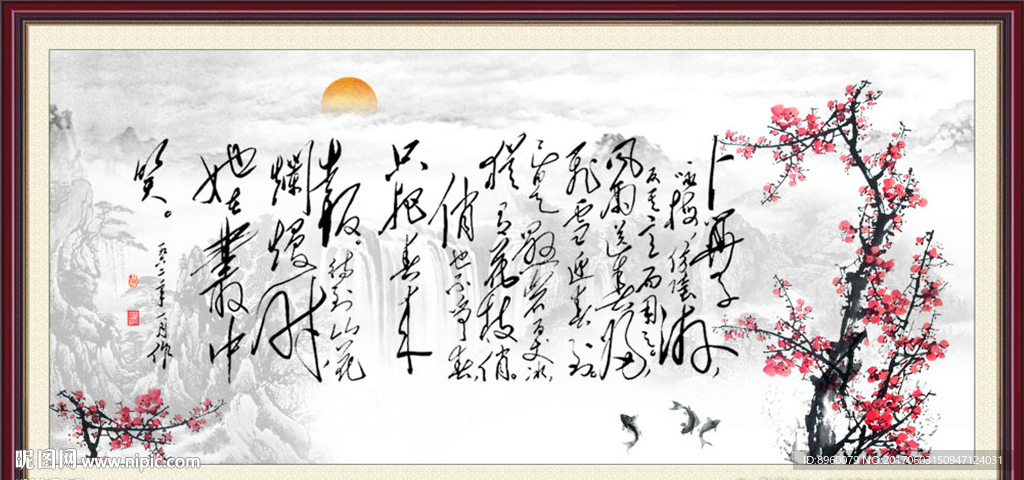 卜算子
咏梅 依陸游,
反其意而用之。
風雨送春歸,
飛雪迎春到,
已是懸崖百丈冰,
猶有花枝俏。
俏也不爭春,
只把春來
報。待到山花
爛熳時
她在叢中
笑。
一九六二年一月作
昵图网 www.nipic.com
ID:8960079 NO:20170603150947124031